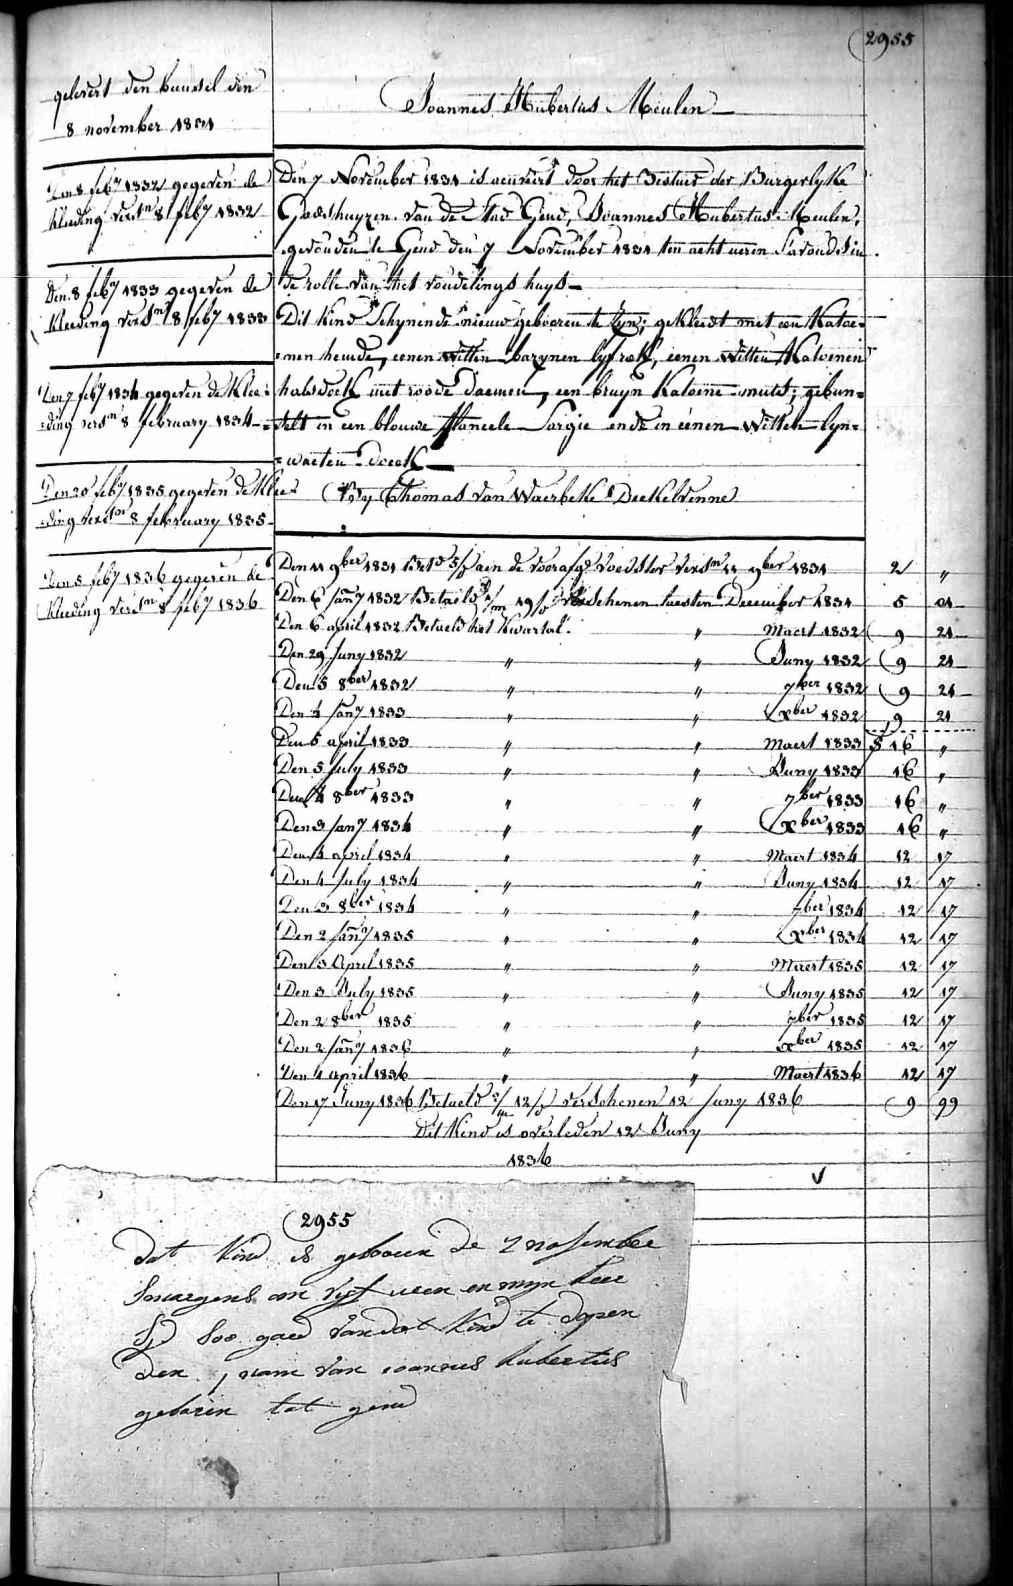 2955
gelevert den bundel den
8 november 1831
Joannes Hubertus Meulen
Den 8 feby 1832 gegeven de
Kleeding versn 8 feby 1832
Den 8 feby 1833 gegeven de
Kleeding versn 8 feby 1833
Den 7 feby 1834 gegeven de Klee=
=ding versn 8 february 1834
Den 20 feby 1835 gegeven de Klee=
=ding versn 8 february 1835
Den 5 feby 1836 gegeven de
Kleeding versn 8 feby 1836
Den 7 November 1831 is aenveert door het Bestuer der Burgerlyke
Godshuyzen van de Stad Gend, Joannes Hubertus Meulen,
gevonden te Gend den 7 November 1831 ten acht ueren S'avonds in
de rolle van het vondelings huys
Dit Kind Schynende nieuw geboren te zyn; gekleedt met een Katoe=
=nen hemde, eenen witten bazynen lyfrok, eenen witten Katoenen
halsdoek met roode, een bruyn Katoene muts; gebun=
=delt in een blouwe flaneele Sargie ende in eenen witten lyn=
=waeten doeck
By Thomas van Waerbeke Deckelvenne
Den 11 9ber 1831 aen de voorafgd voedster versn 11 9ber 1831 2 "
Den 6 Jany 1832 Betaeld 19/ verschenen laesten December 1831 5 01
Den 6 april 1832 Betaeld het Kwartal. " Maert 1832 9 21
Den 29 Juny 1832 " " Juny 1832 9 21
Den 5 8ber 1832 " " 7ber 1832 9 21
Den 4 Jany 1833 " " Xber 1832 9 21
Den 5 april 1833 " " Maert 1833 16 "
Den 5 July 1833 " " Juny 1833 16 "
Den 4 8ber 1833 " " 7ber 1833 16 "
Den 3 Jany 1834 " " Xber 1833 16 "
Den 4 april 1834 " " Maert 1834 12 17
Den 4 July 1834 " " Juny 1834 12 17
Den 3 8ber 1834 " " 7ber 1834 12 17
Den 2 Jany 1835 " " Xber 1834 12 17
Den 3 April 1835 " " Maert 1835 12 17
Den 3 July 1835 " " Juny 1835 12 17
Den 2 8ber 1835 " " 7ber 1835 12 17
Den 2 Jany 1836 " " Xber 1835 12 17
Den 1 april 1836 " " Maert 1836 12 17
Den 17 Juny 1836 Betaeld 12/ verschenen 12 Juny 1836 9 99
Dit Kind is overleden 12 Juny
1836
2955
Dat Kind is gebooren de 7 november
Smargens om vyf ueren en myn heer
Sy soo goed van dat kind te dopen
den naem van joannes hubertus
geboren tot gend